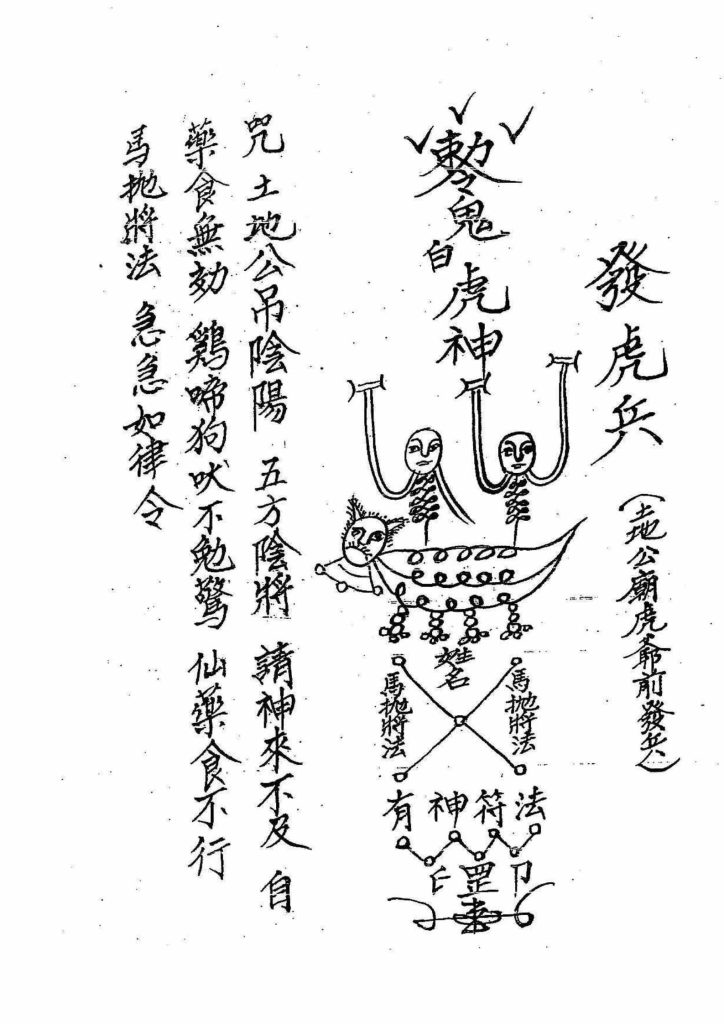 發虎兵
（土地公廟虎爺前發兵）
勅令
鬼
白虎神
姓名
馬抛將法
馬抛將法
有神符法
罡
咒 土地公吊陰陽 五方陰將 請神來不及 自
藥食無効 鷄啼狗吠不勉驚 仙藥食不行
馬抛將法 急急如律令